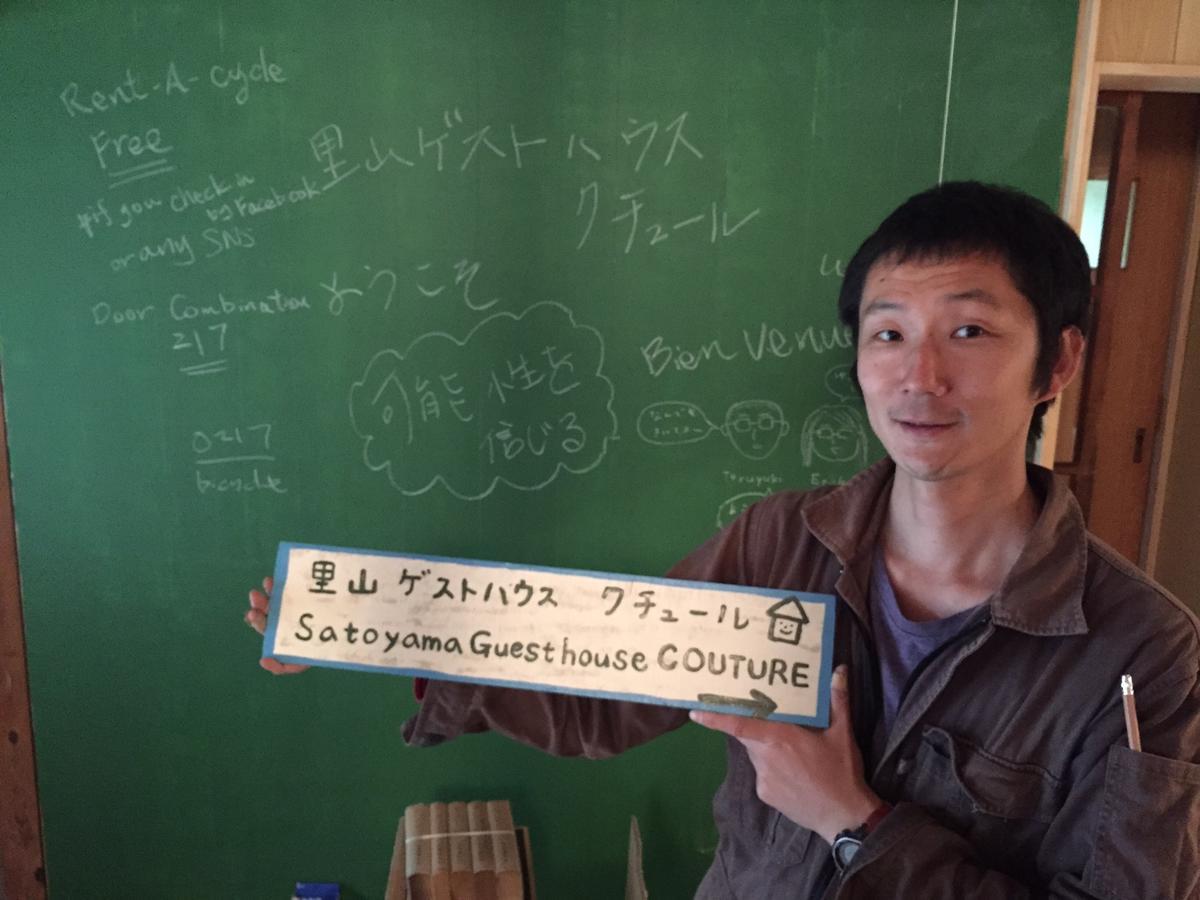 Rent-A-cycle
Free
※if you check in
by Facebook
or any SNS
Door Combination
217
0217
bicycle
里山ゲストハウス
クチュール
ようこそ
可能性を
信じる
Bienvenue
Teruyuki
里山 ゲストハウス クチュール
Satoyama Guesthouse COUTURE